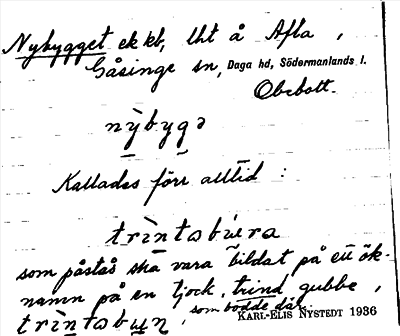 Nybygget ek kb, lht å Afla,
Gåsinge sn, Daga hd, Södermanlands l.
Obebott.
nỳbygə
Kallades förr alltid:
trìntəbṷra
som påstås ska vara bildat på ett ök-
namn på en tjock, trind gubbe,
som bodde där.
trìntəbṷn,
KARL-ELIS NYSTEDT 1936